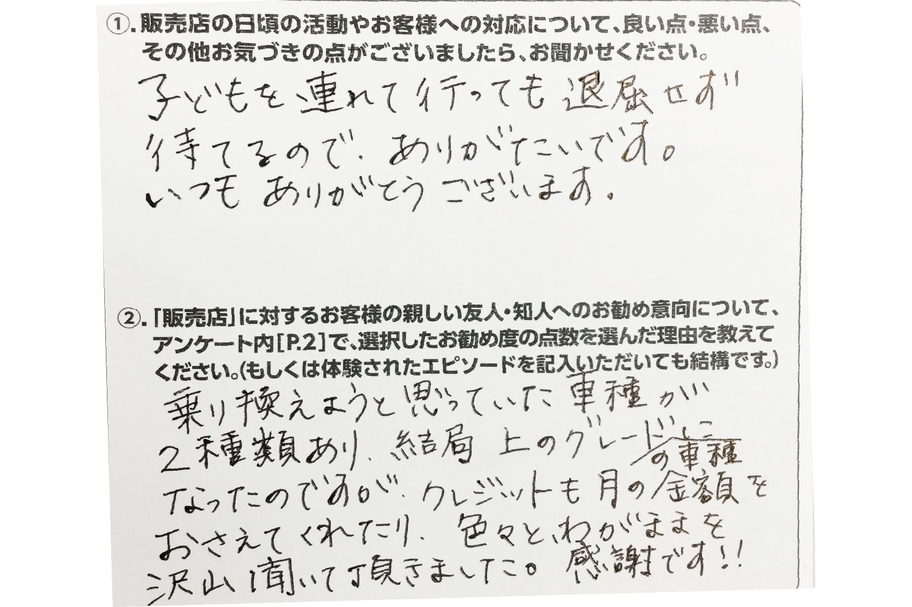 ①.販売店の日頃の活動やお客様への対応について、良い点・悪い点、
その他お気づきの点がございましたら、お聞かせください。
子どもを連れて行っても退屈せず
待てるので、ありがたいです。
いつもありがとうございます。
②.「販売店」に対するお客様の親しい友人・知人へのお勧め意向について、
アンケート内[P.2]で、選択したお勧め度の点数を選んだ理由を教えて
ください。(もしくは体験されたエピソードを記入いただいても結構です。)
乗り換えようと思っていた車種が
2種類あり、結局上のグレードの車種に
なったのですが、クレジットも月の金額を
おさえてくれたり、色々とわがままを
沢山聞いて頂きました。感謝です!!